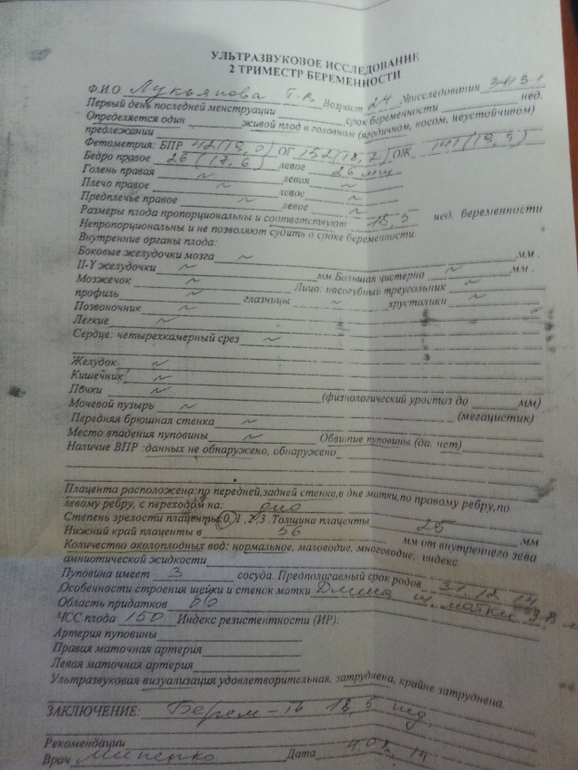 УЛЬТРАЗВУКОВОЕ ИССЛЕДОВАНИЕ
2 ТРИМЕСТР БЕРЕМЕННОСТИ
Ф.И.О. Лукьянова Возраст 24 №исследования
Первый день последней менструации срок беременности нед.
Определяется один живой плод в головном (ягодичном, косом, неустойчивом)
предлежании
Фетометрия: БПР 42(19,0) ОГ 152(18,2) ОЖ 141(19,3)
Бедро правое 26 (17,6) левое 26 мм
Голень правая ~ левая ~
Плечо правое ~ левое ~
Предплечье правое ~ левое ~
Размеры плода пропорциональны и соответствуют 18,5 нед. беременности
Непропорциональны и не позволяют судить о сроке беременности.
Внутренние органы плода:
Боковые желудочки мозга ~ мм.
II-Y желудочки ~ мм.Большая цистерна ~ мм.
Мозжечок ~ Лицо: носогубный треугольник ~
профиль ~ глазницы ~ хрусталики ~
Позвоночник ~
Легкие ~
Сердце: четырехкамерный срез ~
Желудок ~
Кишечник ~
Почки ~ (физиологический уростаз до мм)
Мочевой пузырь ~ (мегацистик)
Передняя брюшная стенка ~
Место впадения пуповины ~ Обвитие пуповины (да, нет)
Наличие ВПР :данных не обнаружено, обнаружено
Плацента расположена:по передней,задней стенке,в дне матки,по правому ребру,по
левому ребру, с переходом на: дно
Степень зрелости плаценты 0, 1 .2,3 .Толщина плаценты 25 мм
Нижний край плаценты в 56 мм от внутреннего зева
Количество околоплодных вод: нормальное, маловодие, многоводие, индекс
амниотической жидкости
Пуповина имеет 3 сосуда. Предполагаемый срок родов 31.12.14
Особенности строения шейки и стенок матки Длина ш. матки
Область придатков б/о
ЧСС плода 150 Индекс резистентности (ИР):
Артерия пуповины
Правая маточная артерия
Левая маточная артерия
Ультразвуковая визуализация удовлетворительная, затруднена, крайне затруднена.
ЗАКЛЮЧЕНИЕ: Берем-ть 18,5 нед.
Рекомендации
Врач Дата